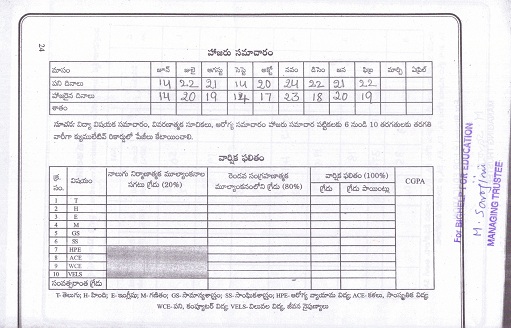 24
హాజరు సమాచారం
మాసం జూన్ జులై ఆగష్టు సెప్టె అక్టో నవం డిసెం జన ఫిబ్ర మార్చి ఏప్రిల్
పని దినాలు 14 22 21 14 20 24 22 21 22
హాజరైన దినాలు 14 20 19 17 23 18 20 19
శాతం
సూచన: విద్యా విషయక సమాచారం, వివరణాత్మక సూచికలు, ఆరోగ్య సమాచారం హాజరు సమాచార పట్టికలకు 6 నుండి 10 తరగతులకు తరగతి
వారీగా క్యుములేటివ్ రికార్డులో పేజీలు కేటాయించాలి.
వార్షిక ఫలితం
క్ర. సం. విషయం నాలుగు నిర్మాణాత్మక మూల్యాంకనాల సగటు గ్రేడు (20%) రెండవ సంగ్రహణాత్మక మూల్యాంకనంలోని గ్రేడు (80%) వార్షిక ఫలితం (100%) CGPA
గ్రేడు గ్రేడు పాయింట్లు
1 T
2 H
3 E
4 M
5 GS
6 SS
7 HPE
8 ACE
9 WCE
10 VELS
సంవత్సరాంత గ్రేడు
T- తెలుగు; H- హింది; E- ఇంగ్లీషు; M- గణితం; GS- సామాన్యశాస్త్రం; SS- సాంఘికశాస్త్రం; HPE- ఆరోగ్య వ్యాయామ విద్య; ACE- కళలు, సాంస్కృతిక విద్య;
WCE- పని, కంప్యూటర్ విద్య; VELS- విలువల విద్య, జీవన నైపుణ్యాలు
FOR EDUCATION
M. Sarojini
MANAGING TRUSTEE